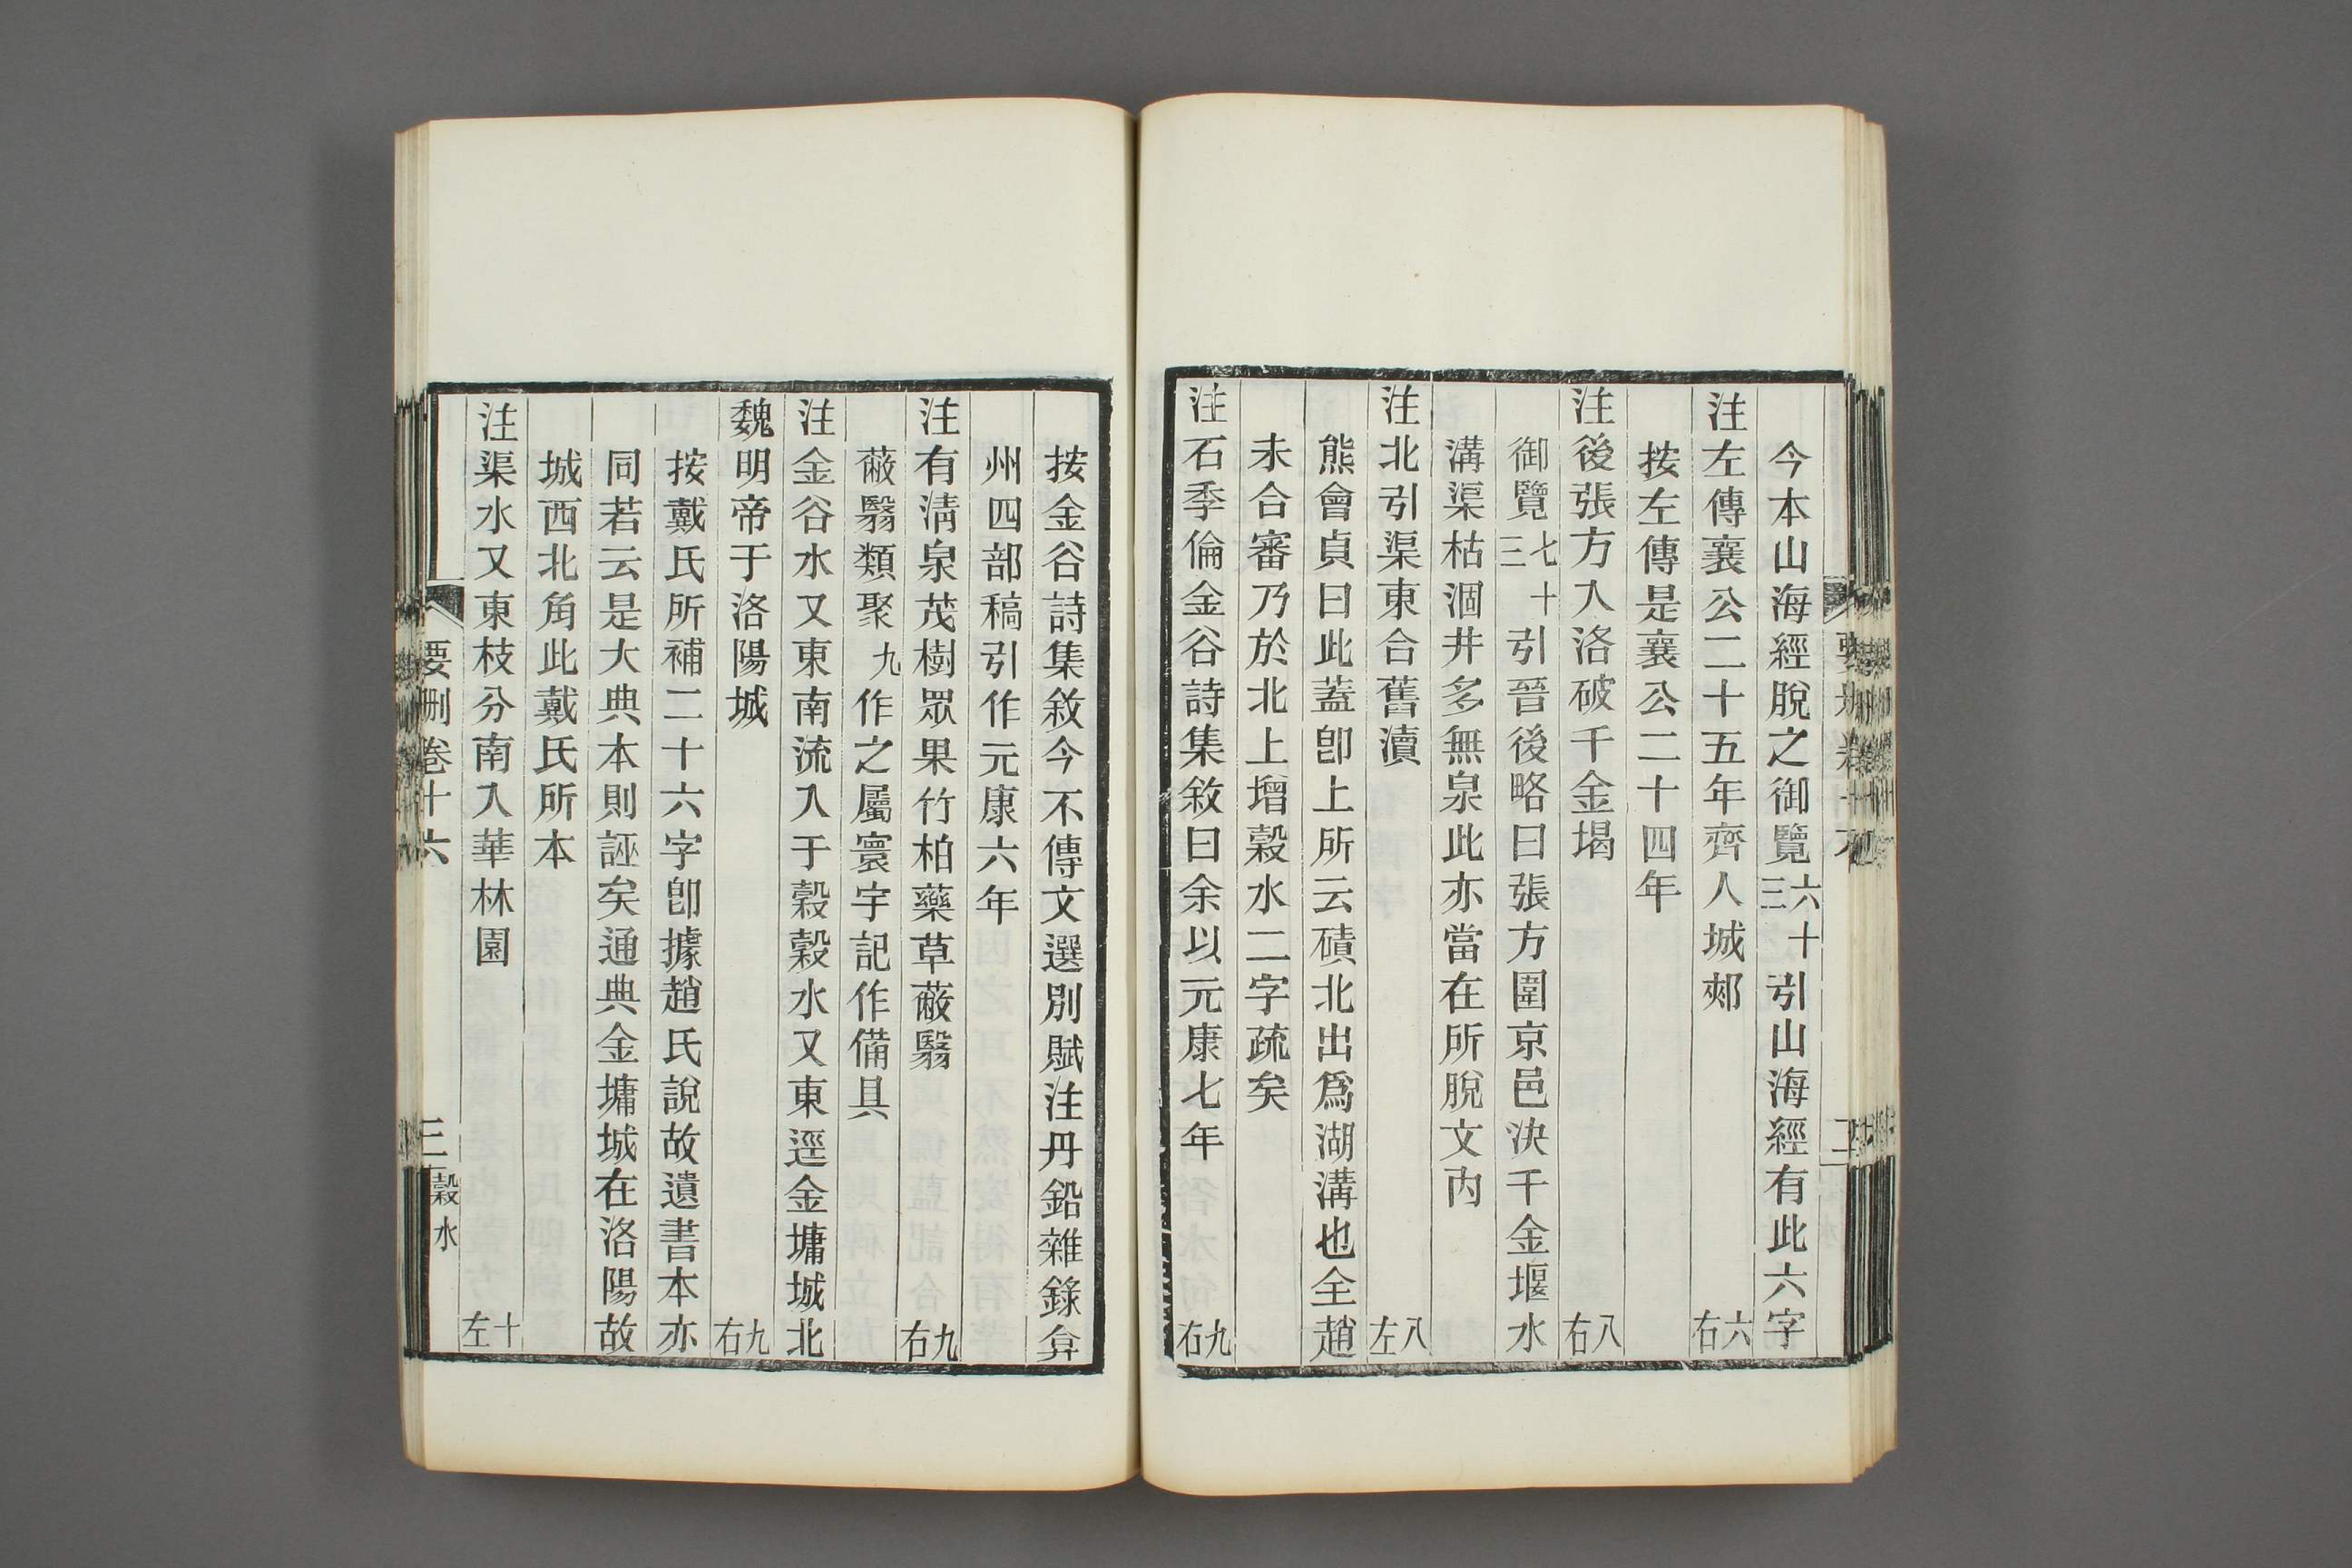 今本山海經脫之御覽六十三引山海經有此六字
注左傳襄公二十五年齊人城郟 六右
按左傳是襄公二十四年
注後張方入洛破千金堨 八右
御覽七十三引晉後略曰張方圍京邑決千金堰水
溝渠枯涸井多無泉此亦當在所脫文內
注北引渠東合舊瀆 八左
熊會貞曰此蓋卽上所云磧北出爲湖溝也全趙
未合審乃於北上增穀水二字疏矣
注石季倫金谷詩集敘曰余以元康七年 九右
按金谷詩集敘今不傳文選別賦注丹鉛雜錄弇
州四部稿引作元康六年
注有清泉茂樹眾果竹柏藥草蔽翳 九右
蔽翳類聚九作之屬寰宇記作備具
注金谷水又東南流入于穀穀水又東逕金墉城北
魏明帝于洛陽城 九右
按戴氏所補二十六字卽據趙氏說故遺書本亦
同若云是大典本則誣矣通典金墉城在洛陽故
城西北角此戴氏所本
注渠水又東枝分南入華林園 十左
要刪卷十六 三 穀水